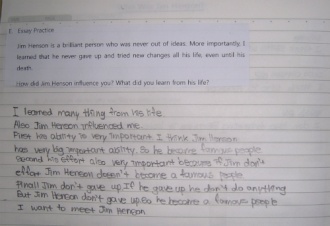 I. Essay Practice
Jim Henson is a brilliant person who was never out of ideas. More importantly, I
learned that he never gave up and tried new changes all his life, even until his
death.
How did Jim Henson influence you? What did you learn from his life?
I learned many thing from his life
Also Jim Henson influenced me.
First his ability is very important I think Jim Henson
has very big important ability. So he become famous people
Second his effort also very important because if Jim don't
effort Jim Henson doesn't become a famous people
Finall Jim don't gave up. If he gave up he don't do anything
But Jim Henson don't gave up. So he become a famous people
I want to meet Jim Henson